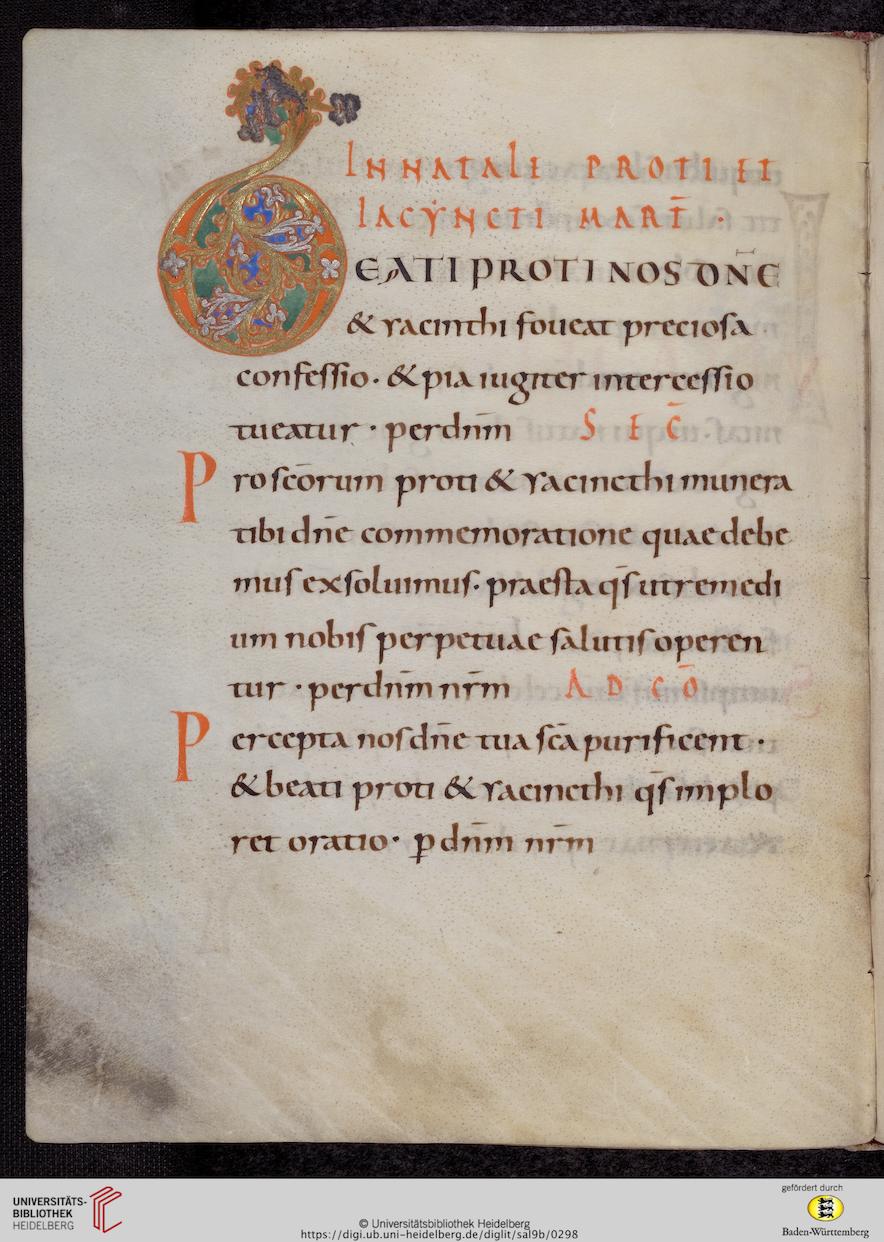 IN NATALE PROTI ET
IACYNCTI MART̄ ·
BEATI PROTI NOS DÑE
& yacinthi foueat preciosa
confessio · & pia iugiter intercessio
tueatur · per dnm̄ S E C̄
P ro sc̄orum proti & yacincthi munera
tibi dn̄e commemoratione quae debe
mus exsoluimus · praesta qs̄ ut remedi
um nobis perpetuae salutis operen
tur · per dnm̄ nrm̄ A D C Ō
P ercepta nos dn̄e tua sc̄a purificent ·
& beati proti & yacincthi qs̄ implo
ret oratio · ꝑ dnm̄ nrm̄
UNIVERSITÄTS-
BIBLIOTHEK
HEIDELBERG
© Universitätsbibliothek Heidelberg
https://digi.ub.uni-heidelberg.de/diglit/sal9b/0298
gefördert durch
Baden-Württemberg